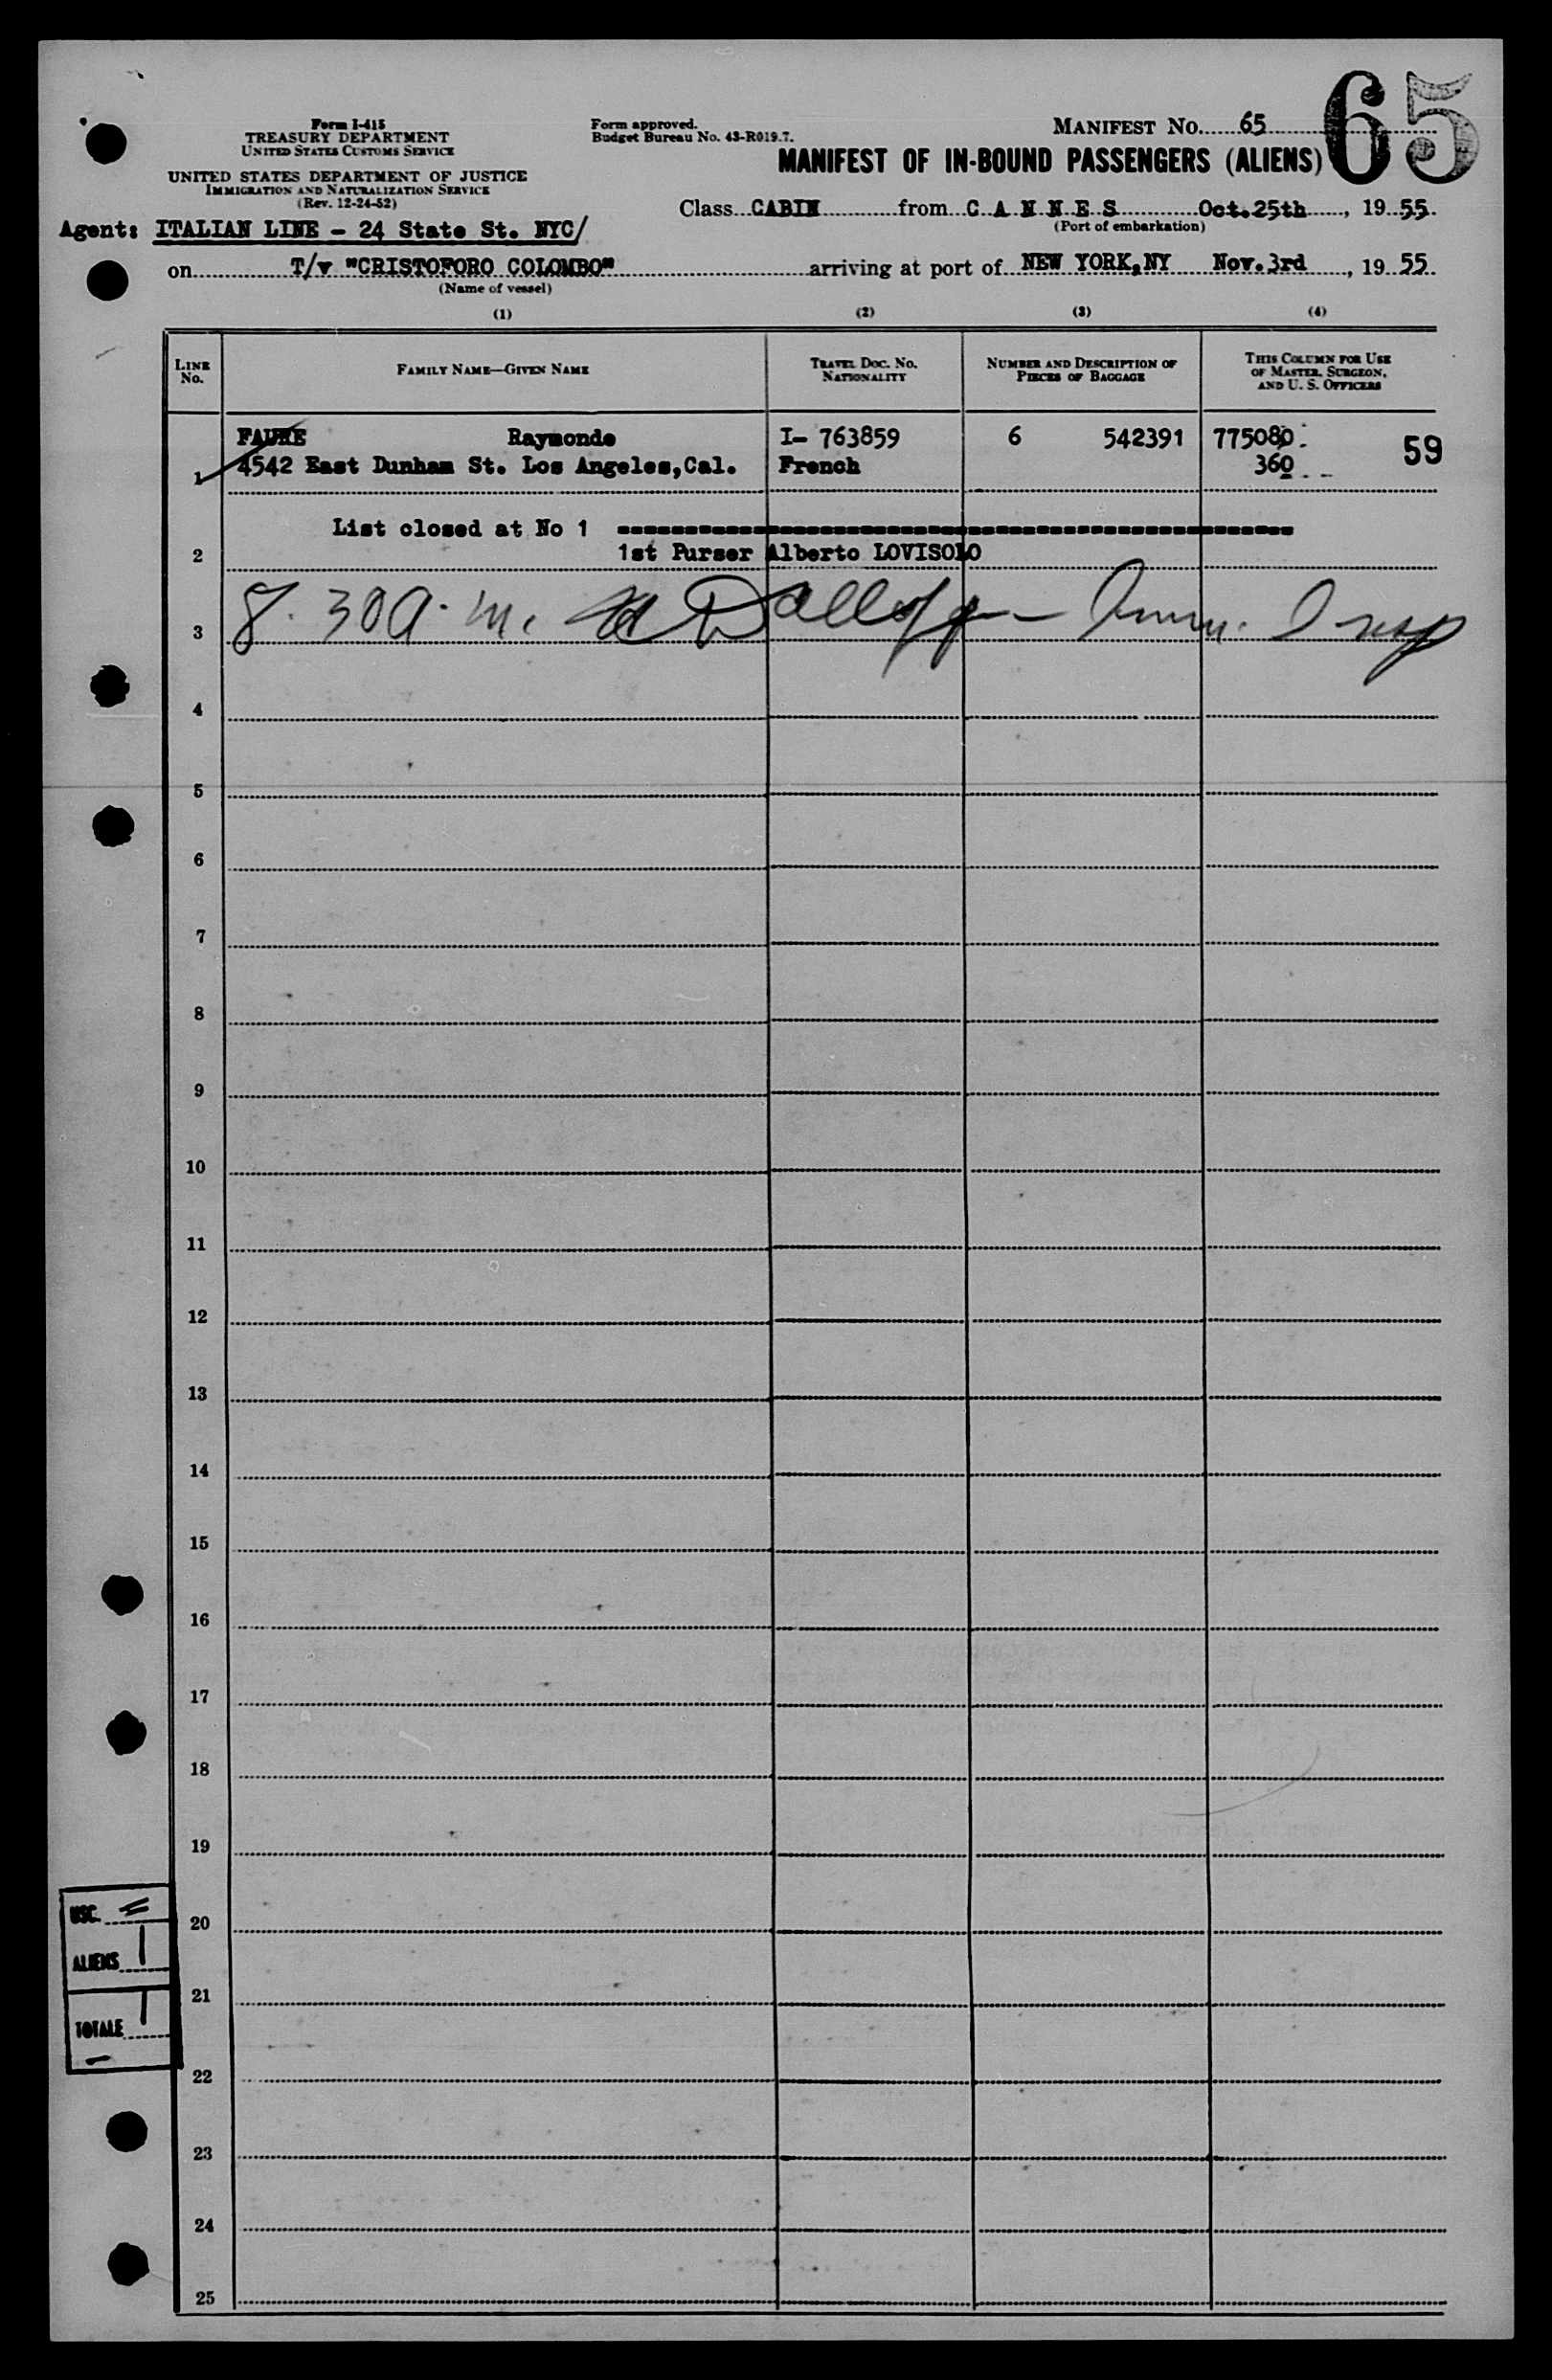 65
Form I-415
TREASURY DEPARTMENT
UNITED STATES CUSTOMS SERVICE
UNITED STATES DEPARTMENT OF JUSTICE
IMMIGRATION AND NATURALIZATION SERVICE
(Rev. 12-24-52)
Form approved.
Budget Bureau No. 43-R019.7.
MANIFEST NO. 65
MANIFEST OF IN-BOUND PASSENGERS (ALIENS)
Class CABIN from C A N N E S Oct.25th, 1955
(Port of embarkation)
Agent: ITALIAN LINE - 24 State St. NYC/
on T/v "CRISTOFORO COLOMBO" arriving at port of NEW YORK,NY Nov.3rd, 1955
(Name of vessel)
(1) (2) (3) (4)
LINE No. FAMILY NAME—GIVEN NAME TRAVEL DOC. NO. NATIONALITY NUMBER AND DESCRIPTION OF PIECES OF BAGGAGE THIS COLUMN FOR USE OF MASTER, SURGEON, AND U. S. OFFICERS
FAURE Raymonde I- 763859 6 542391 775080 59
1 4542 East Dunham St. Los Angeles,Cal. French 360
List closed at No 1
2 1st Purser Alberto LOVISOLO
3 8.30 a.m. Imm. Insp
4
5
6
7
8
9
10
11
12
13
14
15
16
17
18
19
USC.
20
ALIENS 1
21
TOTALE 1
22
23
24
25